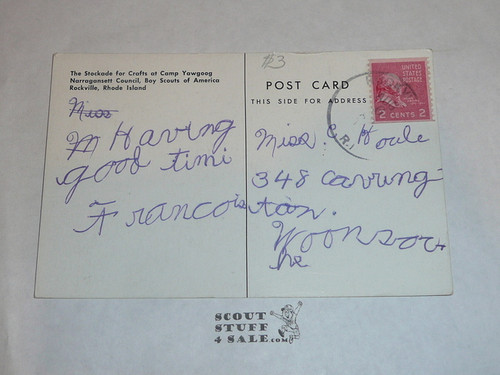 The Stockade for Crafts at Camp Yawgoog
Narragansett Council, Boy Scouts of America
Rockville, Rhode Island
Miss
Having
good timi
Francois
$3
POST CARD
THIS SIDE FOR ADDRESS
UNITED STATES
POSTAGE
2 CENTS 2
R.R.
Miss. Houle
348 Carring-
tan.
Woonsoc-
he
SCOUT
STUFF
4 SALE.com